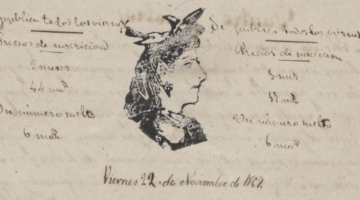 publica todos los viernes
Precios de suscricion
2 meses
44 ms
Un número suelto
6 ms
Se publica todos los viernes
Precios de suscricion
3 ms
Un número suelto
6 ms
Viernes 22 de Noviembre de